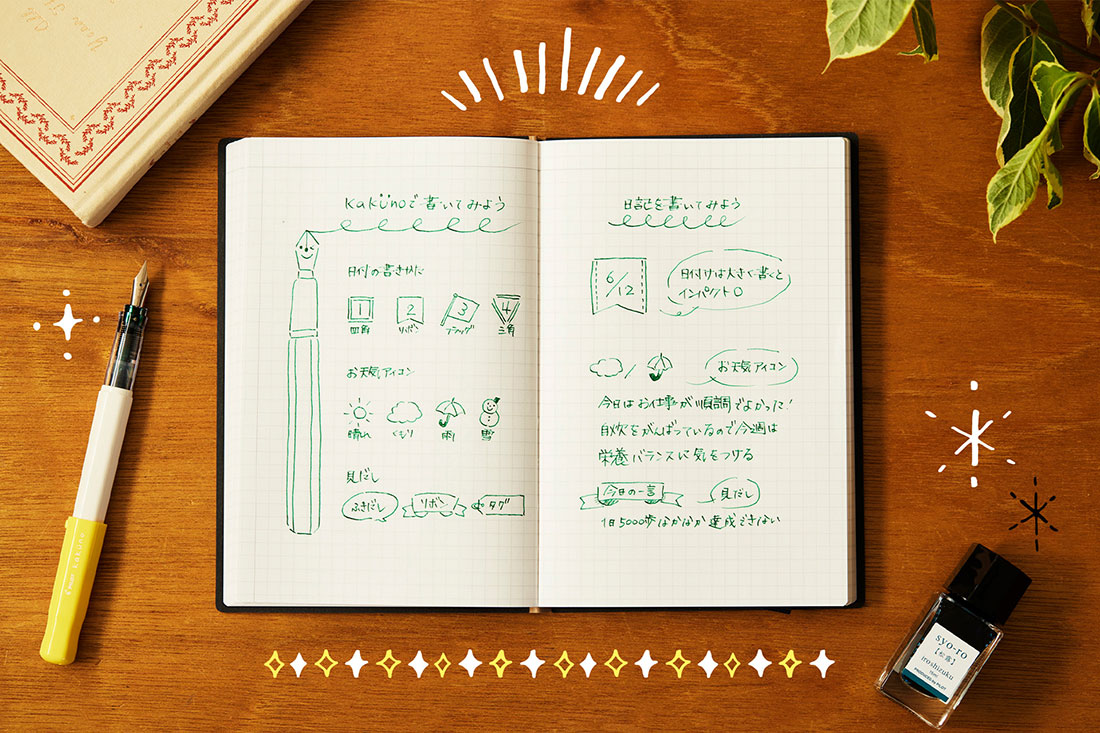 kakünoで書いてみよう
日付の書きかた
1
2
3
4
四角
リボン
フラッグ
三角
お天気アイコン
晴れ
くもり
雨
雪
見だし
ふきだし
リボン
タグ
日記を書いてみよう
6/12
日付けは大きく書くと
インパクト○
お天気アイコン
今日はお仕事が順調でよかった!
自炊をがんばっているので今週は
栄養バランスに気をつける
今日の一言
見だし
1日5000歩なかなか達成できない
kaküno
syo-ro
【松露】
iroshizuku
15ml
PRODUCED by PILOT